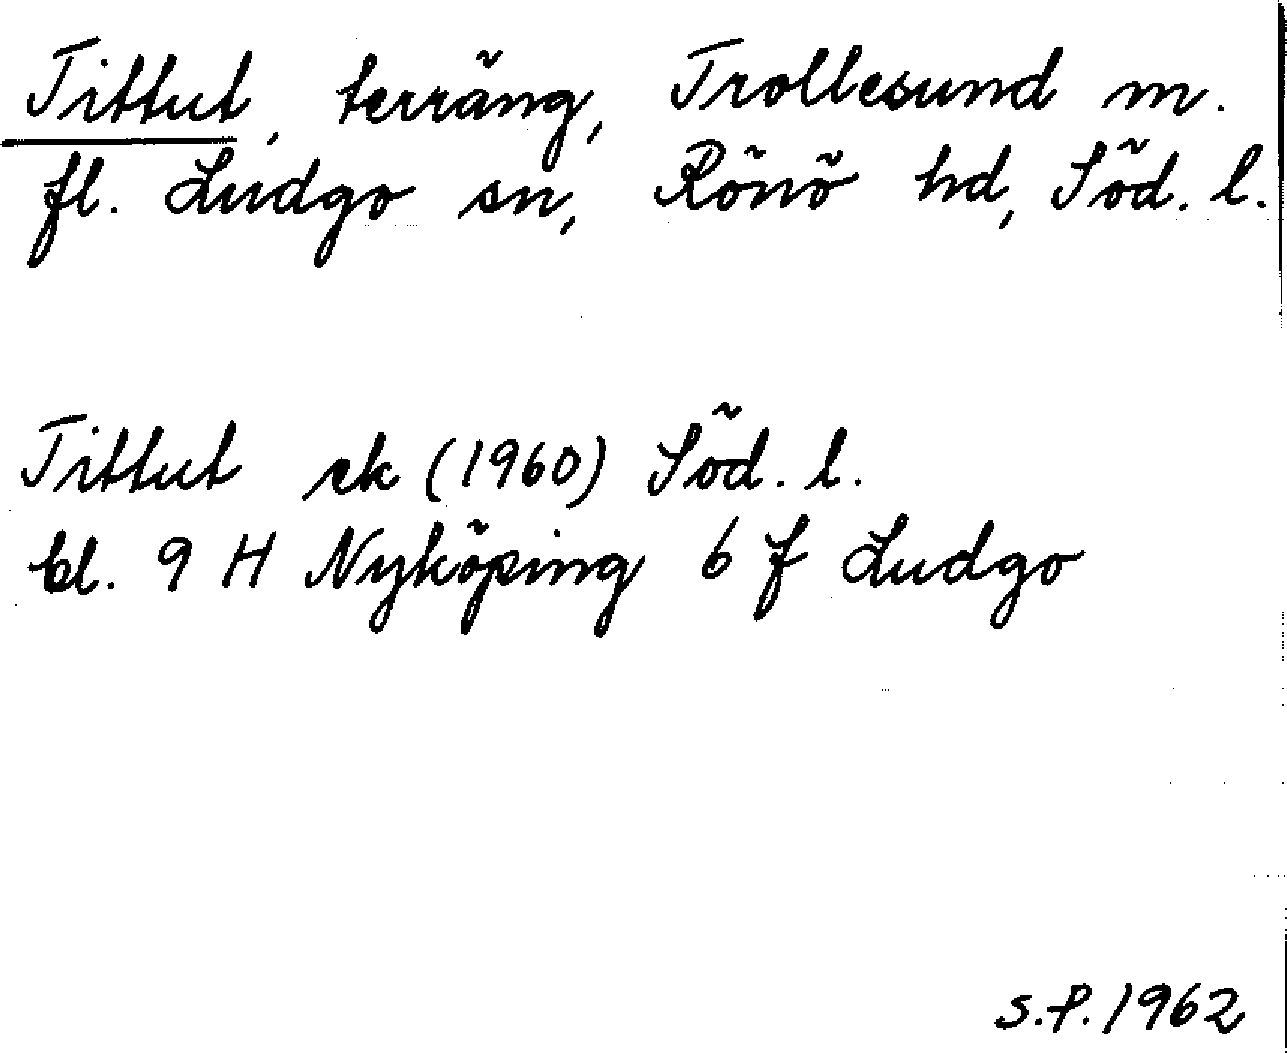 Tittut, terräng, Trollesund m.
fl. Ludgo sn, Rönö hd, Söd. l.
Tittut ek (1960) Söd. l.
bl. 9 H Nyköping 6 f Ludgo
S.P. 1962